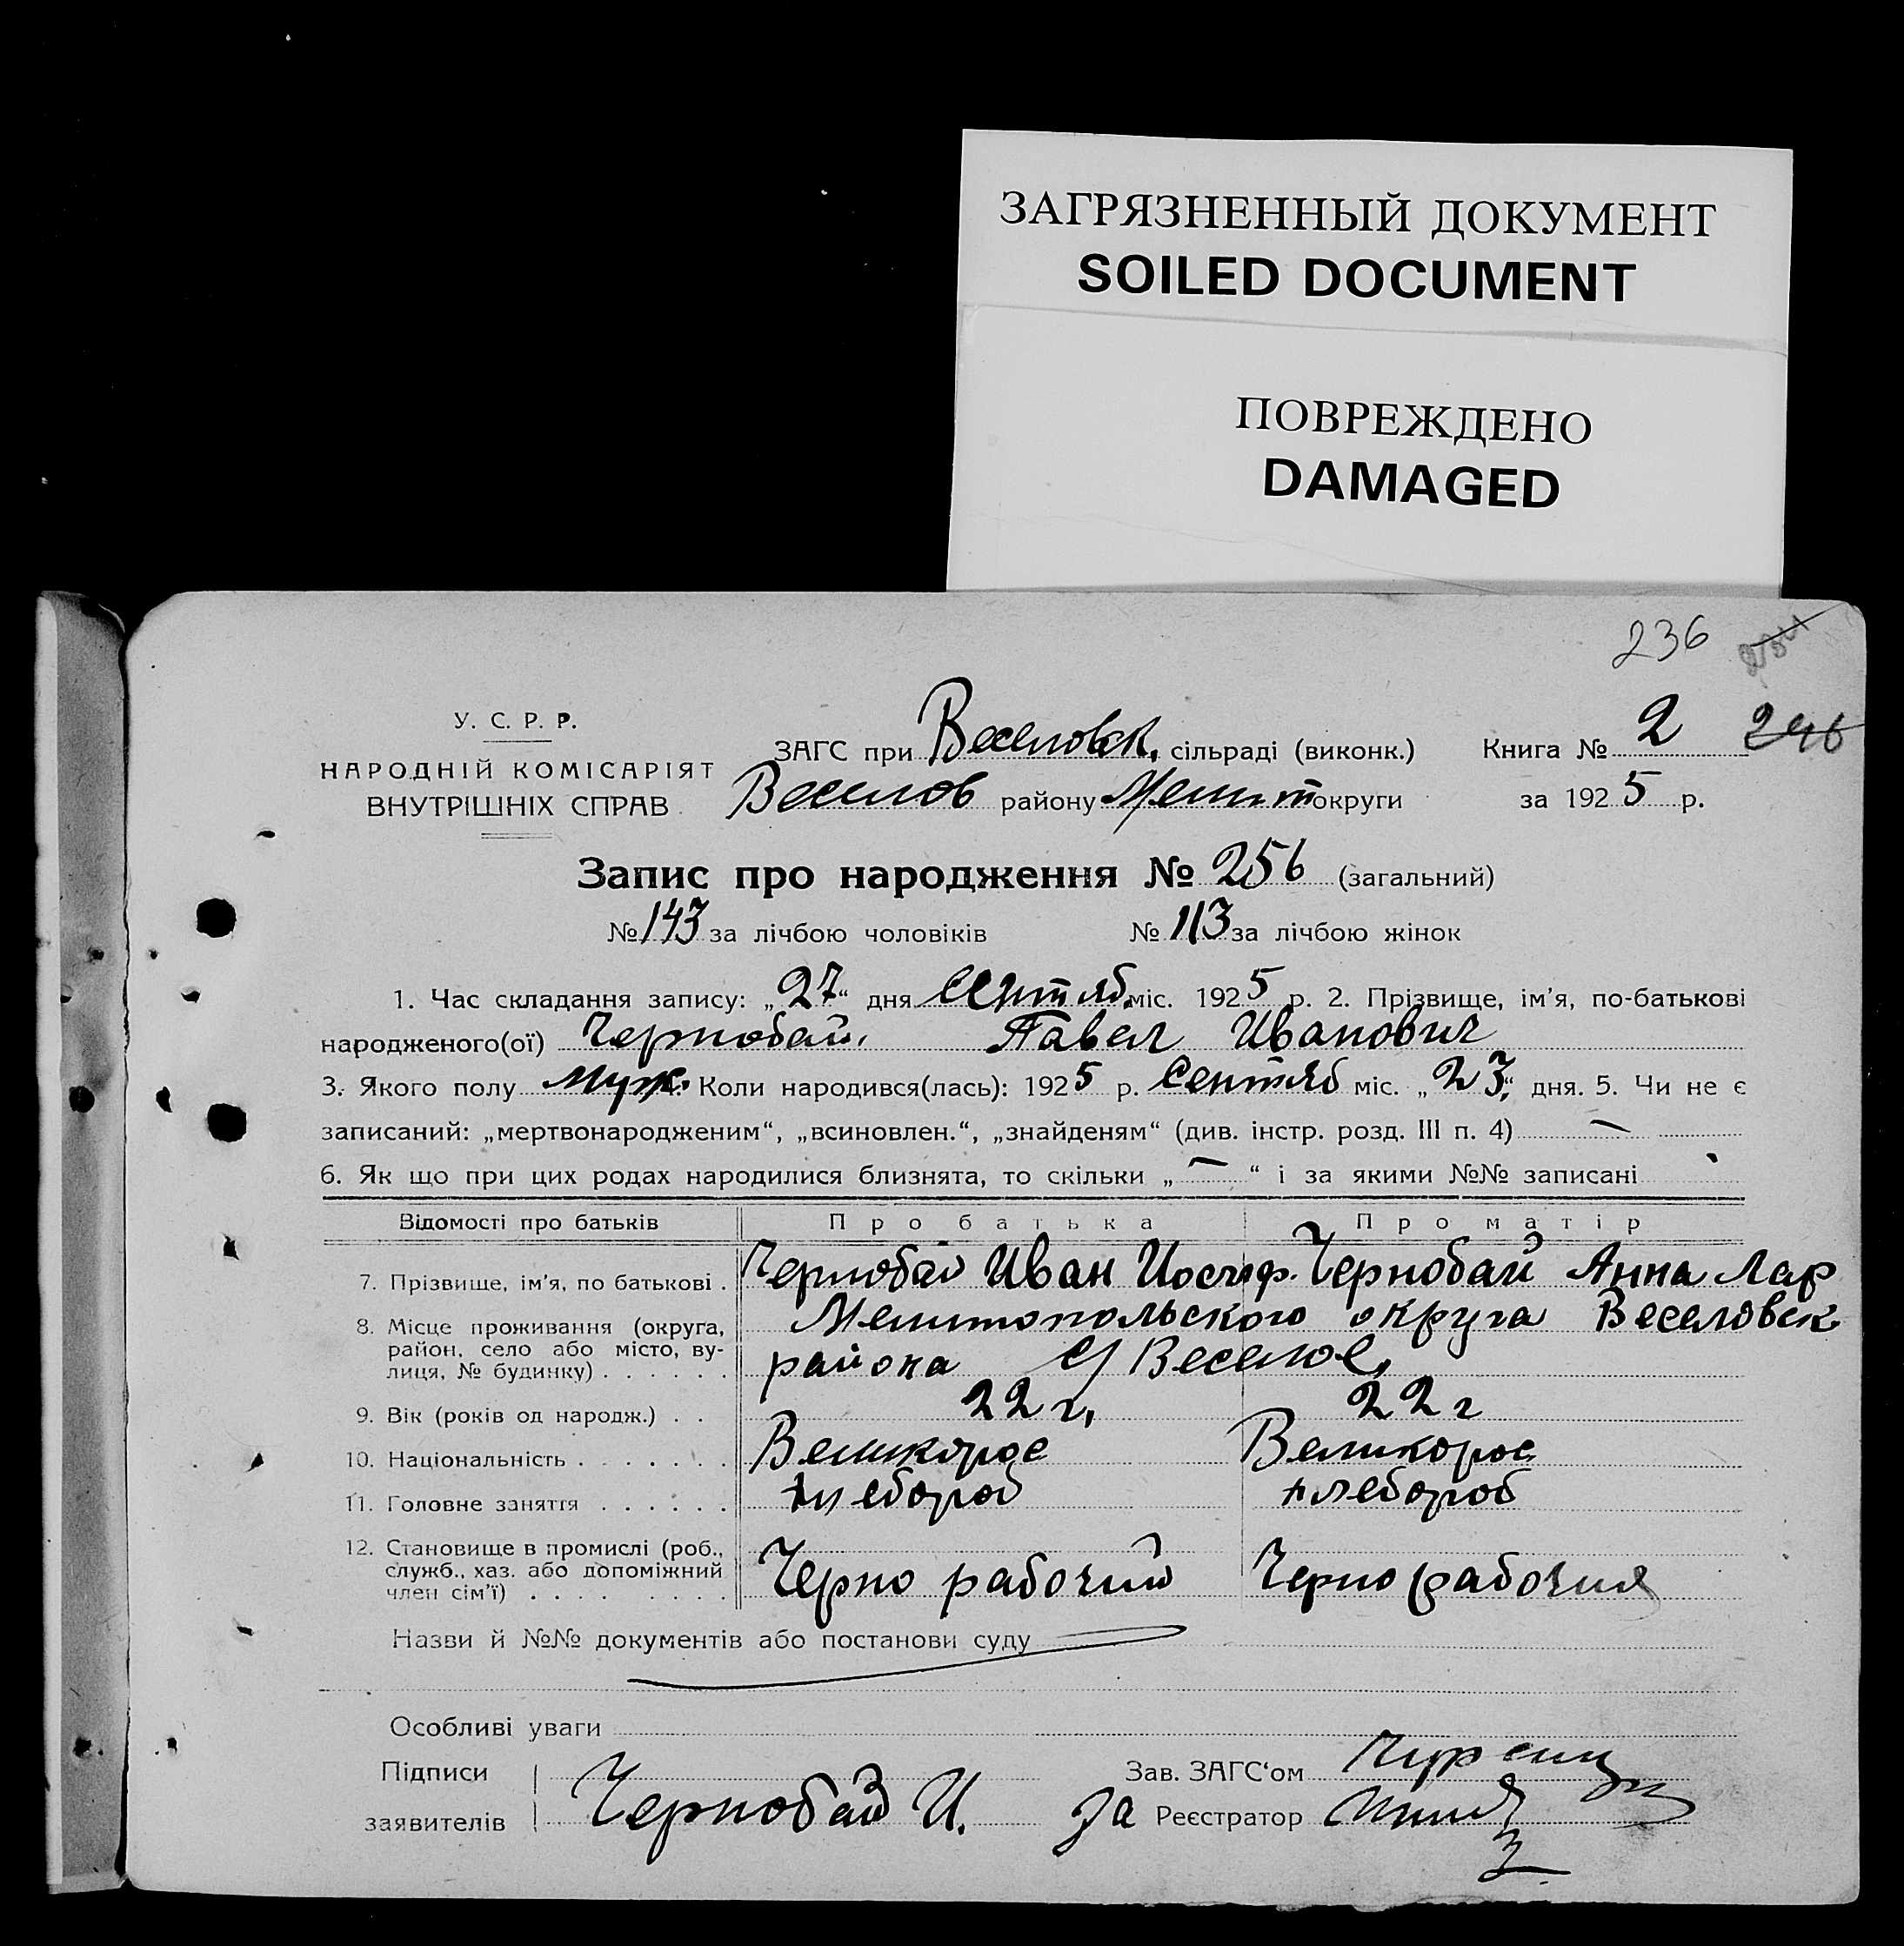 ЗАГРЯЗНЕННЫЙ ДОКУМЕНТ
SOILED DOCUMENT
ПОВРЕЖДЕНО
DAMAGED
236
У. С. Р. Р.
НАРОДНІЙ КОМІСАРІЯТ
ВНУТРІШНІХ СПРАВ
ЗАГС при Веселовск. сільраді (виконк.) Книга № 2 246
Веселов району Мелит округи за 1925 р.
Запис про народження № 256 (загальний)
№ 143 за лічбою чоловіків № 113 за лічбою жінок
1. Час складання запису: „27“ дня Сентяб. міс. 1925 р. 2. Прізвище, ім'я, по-батькові
народженого(ої) Чернобай Павел Иванович
3. Якого полу муж. Коли народився(лась): 1925 р. Сентяб міс. „23“ дня. 5. Чи не є
записаний: „мертвонародженим“, „всиновлен.“, „знайденям“ (див. інстр. розд. III п. 4) —
6. Як що при цих родах народилися близнята, то скільки „—“ і за якими №№ записані
Відомості про батьків Про батька Про матір
7. Прізвище, ім'я, по батькові . Чернобай Иван Иосиф. Чернобай Анна Лар
8. Місце проживання (округа, Мелитопольского округа Веселовск
район, село або місто, ву- района с/ Веселое,
лиця, № будинку) . . . . . .
9. Вік (років од народж.) . . 22 г, 22 г
10. Національність . . . . . . . Великорос Великорос
11. Головне заняття . . . . . . хлебороб хлебороб
12. Становище в промислі (роб.,
служб., хаз. або допоміжний Черно рабочий Черно рабочия
член сім'ї) . . . . . . . .
Назви й №№ документів або постанови суду
Особливі уваги
Підписи Зав. ЗАГС‘ом
заявителів Чернобай И. За Реєстратор